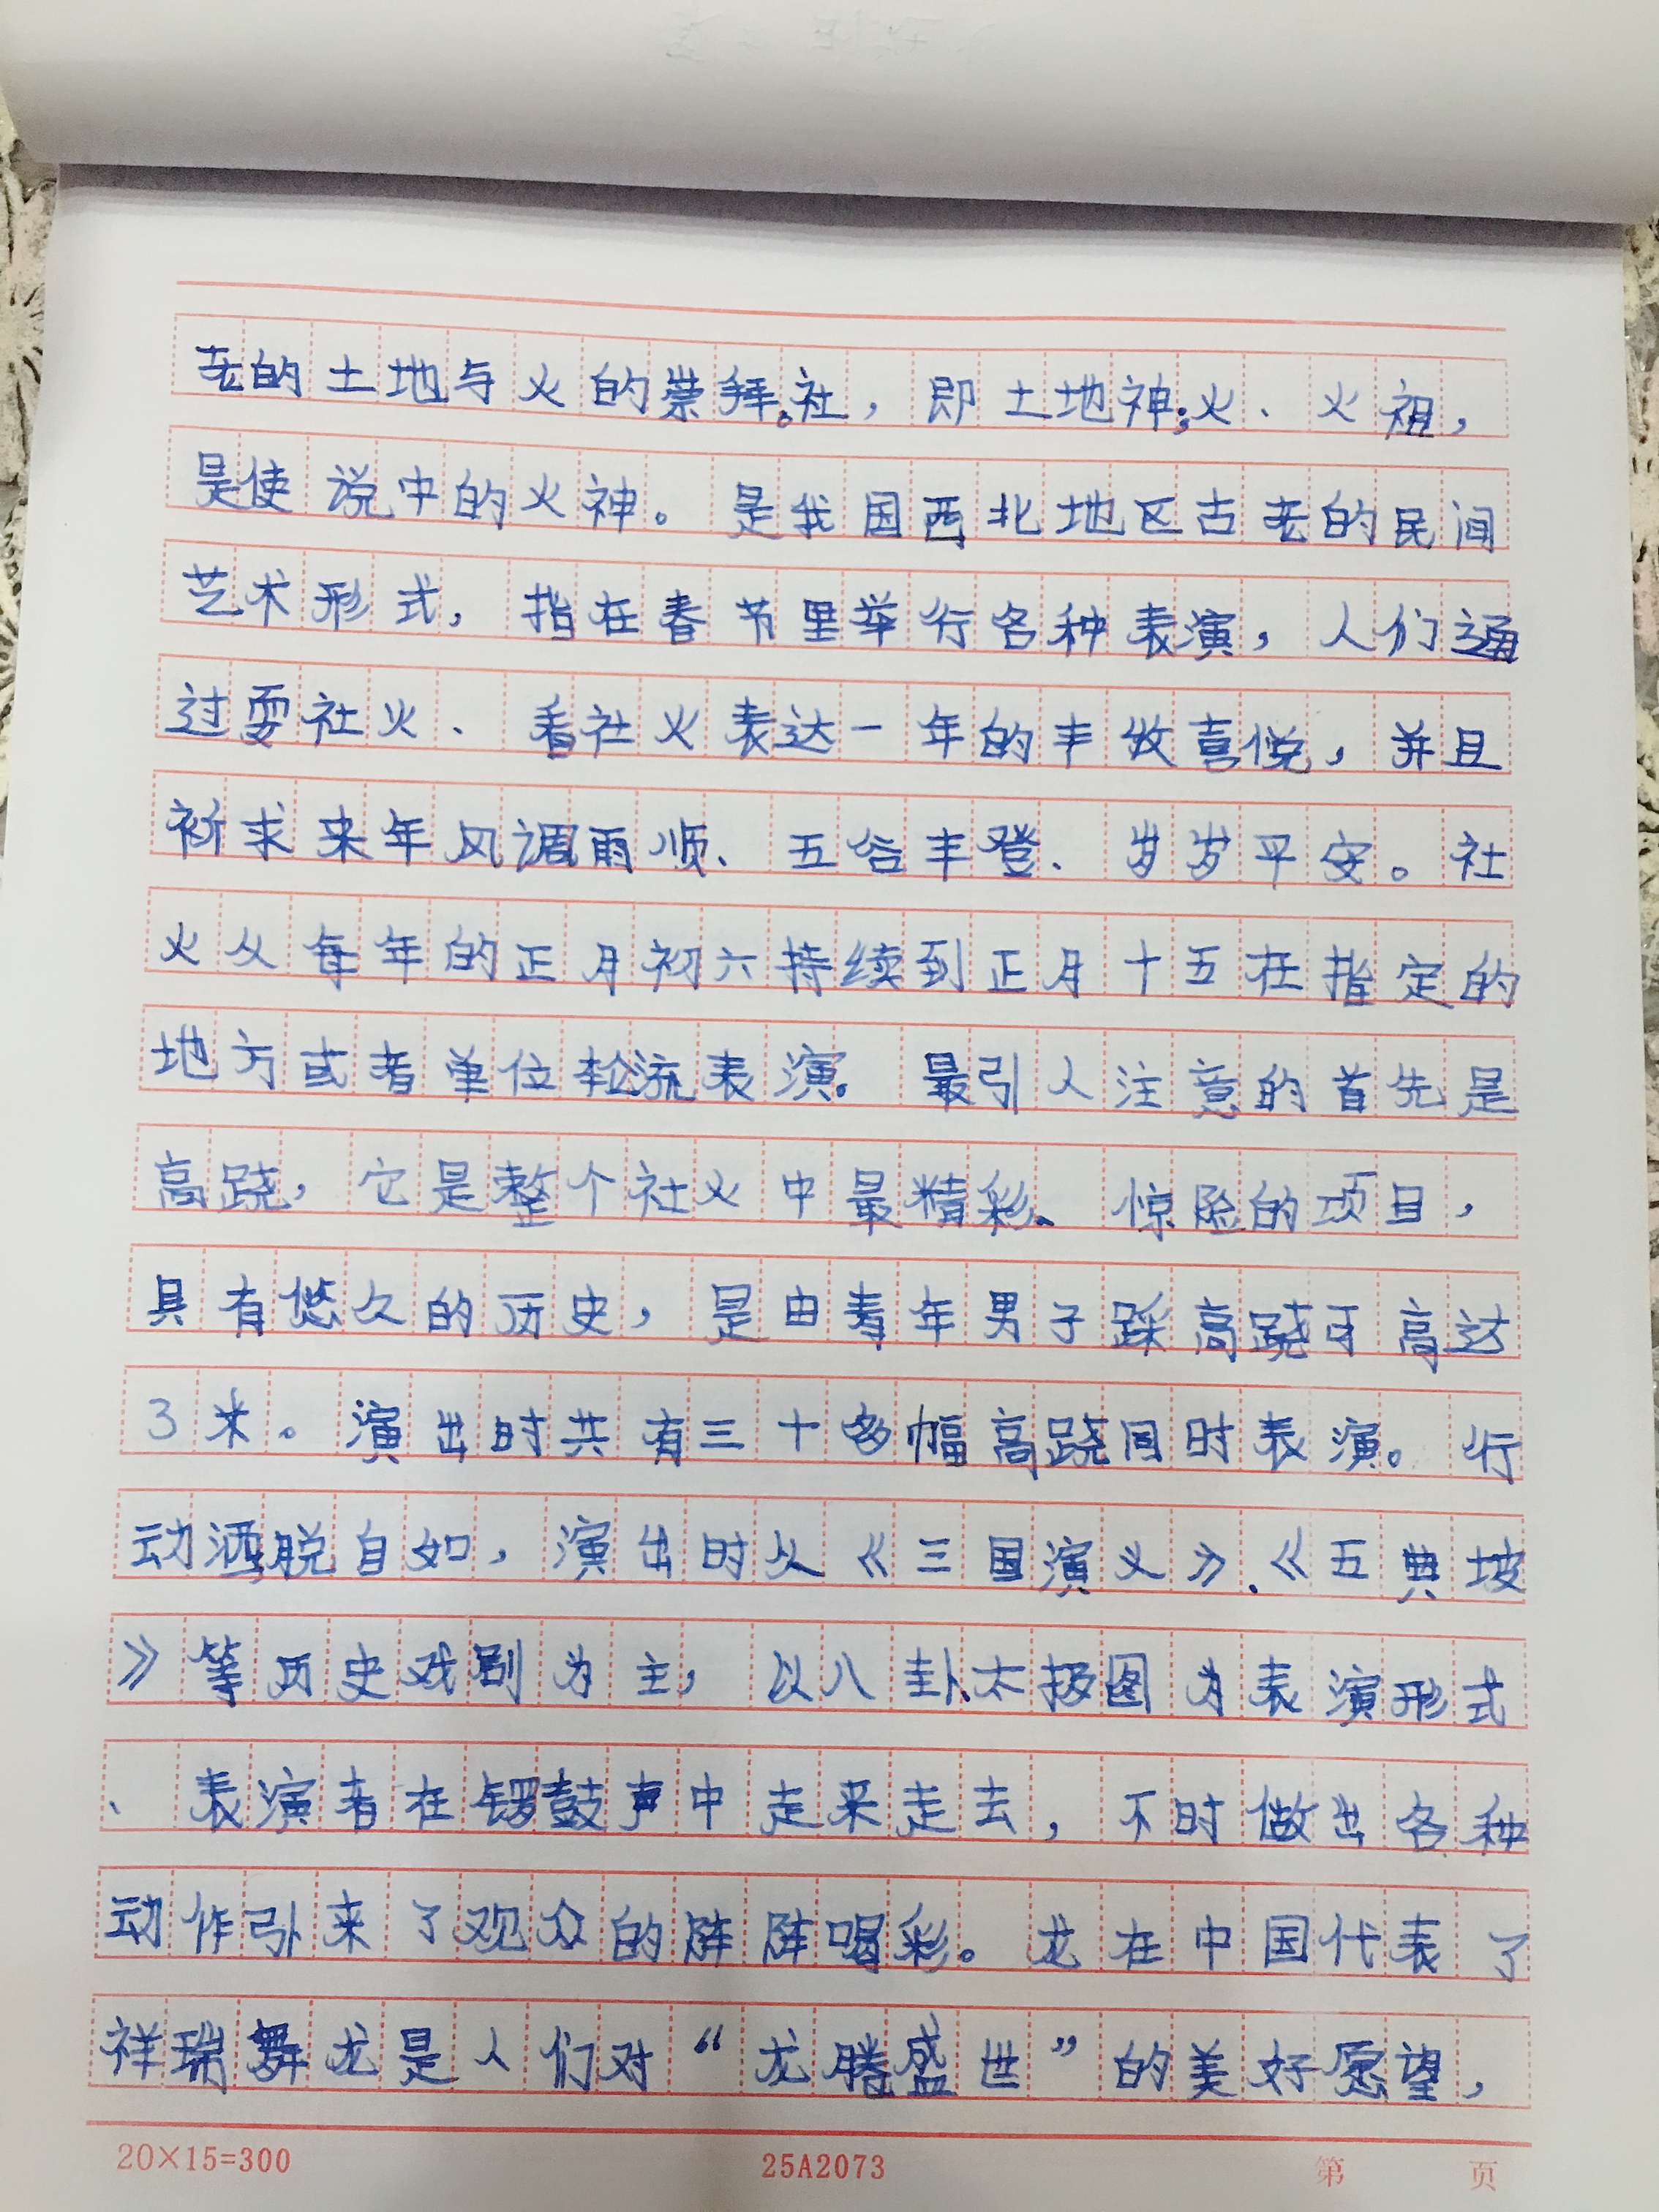 老的土地与火的崇拜。社，即土地神；火、火祖，
是使说中的火神。是我国西北地区古老的民间
艺术形式，指在春节里举行各种表演，人们通
过耍社火、看社火表达一年的丰收喜悦，并且
祈求来年风调雨顺、五谷丰登、岁岁平安。社
火从每年的正月初六持续到正月十五在指定的
地方或者单位轮流表演。最引人注意的首先是
高跷，它是整个社火中最精彩、惊险的项目，
具有悠久的历史，是由青年男子踩高跷可高达
3米。演出时共有三十多幅高跷同时表演。行
动洒脱自如，演出时从《三国演义》、《五典坡
》等历史戏剧为主，以八卦、太极图为表演形式
、表演者在锣鼓声中走来走去，不时做出各种
动作引来了观众的阵阵喝彩。龙在中国代表了
祥瑞舞龙是人们对“龙腾盛世”的美好愿望，
20×15=300 25A2073 第 页